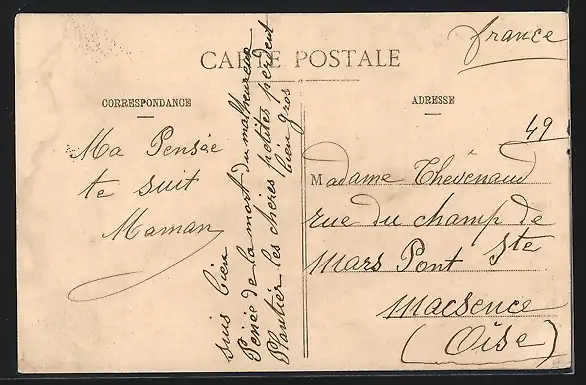 france
CARTE POSTALE
CORRESPONDANCE
ADRESSE
Ma Pensée
te suit
Maman
suis bien
Peinée de la mort du malheureux
Plantier les chères petites perdent
bien gros
49
Madame Thévenaud
rue du champ de
Mars Pont Ste
Maesence
(Oise)